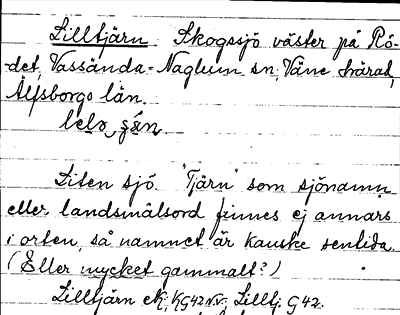 Lilltjärn Skogssjö väster på Rö-
det, Vassända-Naglum sn, Väne härad,
Älfsborgs län.
Liten sjö. "Tjärn" som sjönamn
eller landsmålsord finnes ej annars
i orten, så namnet är kanske sentida.
(Eller mycket gammalt?)
Lilltjärn EK, KG42NV, Lilltj. G42.